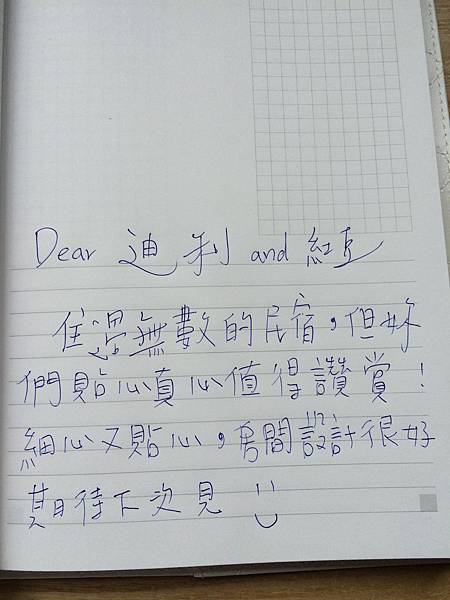 Dear 迪利 and 紅豆
住過無數的民宿，但妳
們貼心真心值得讚賞！
細心又貼心，房間設計很好
期待下次見